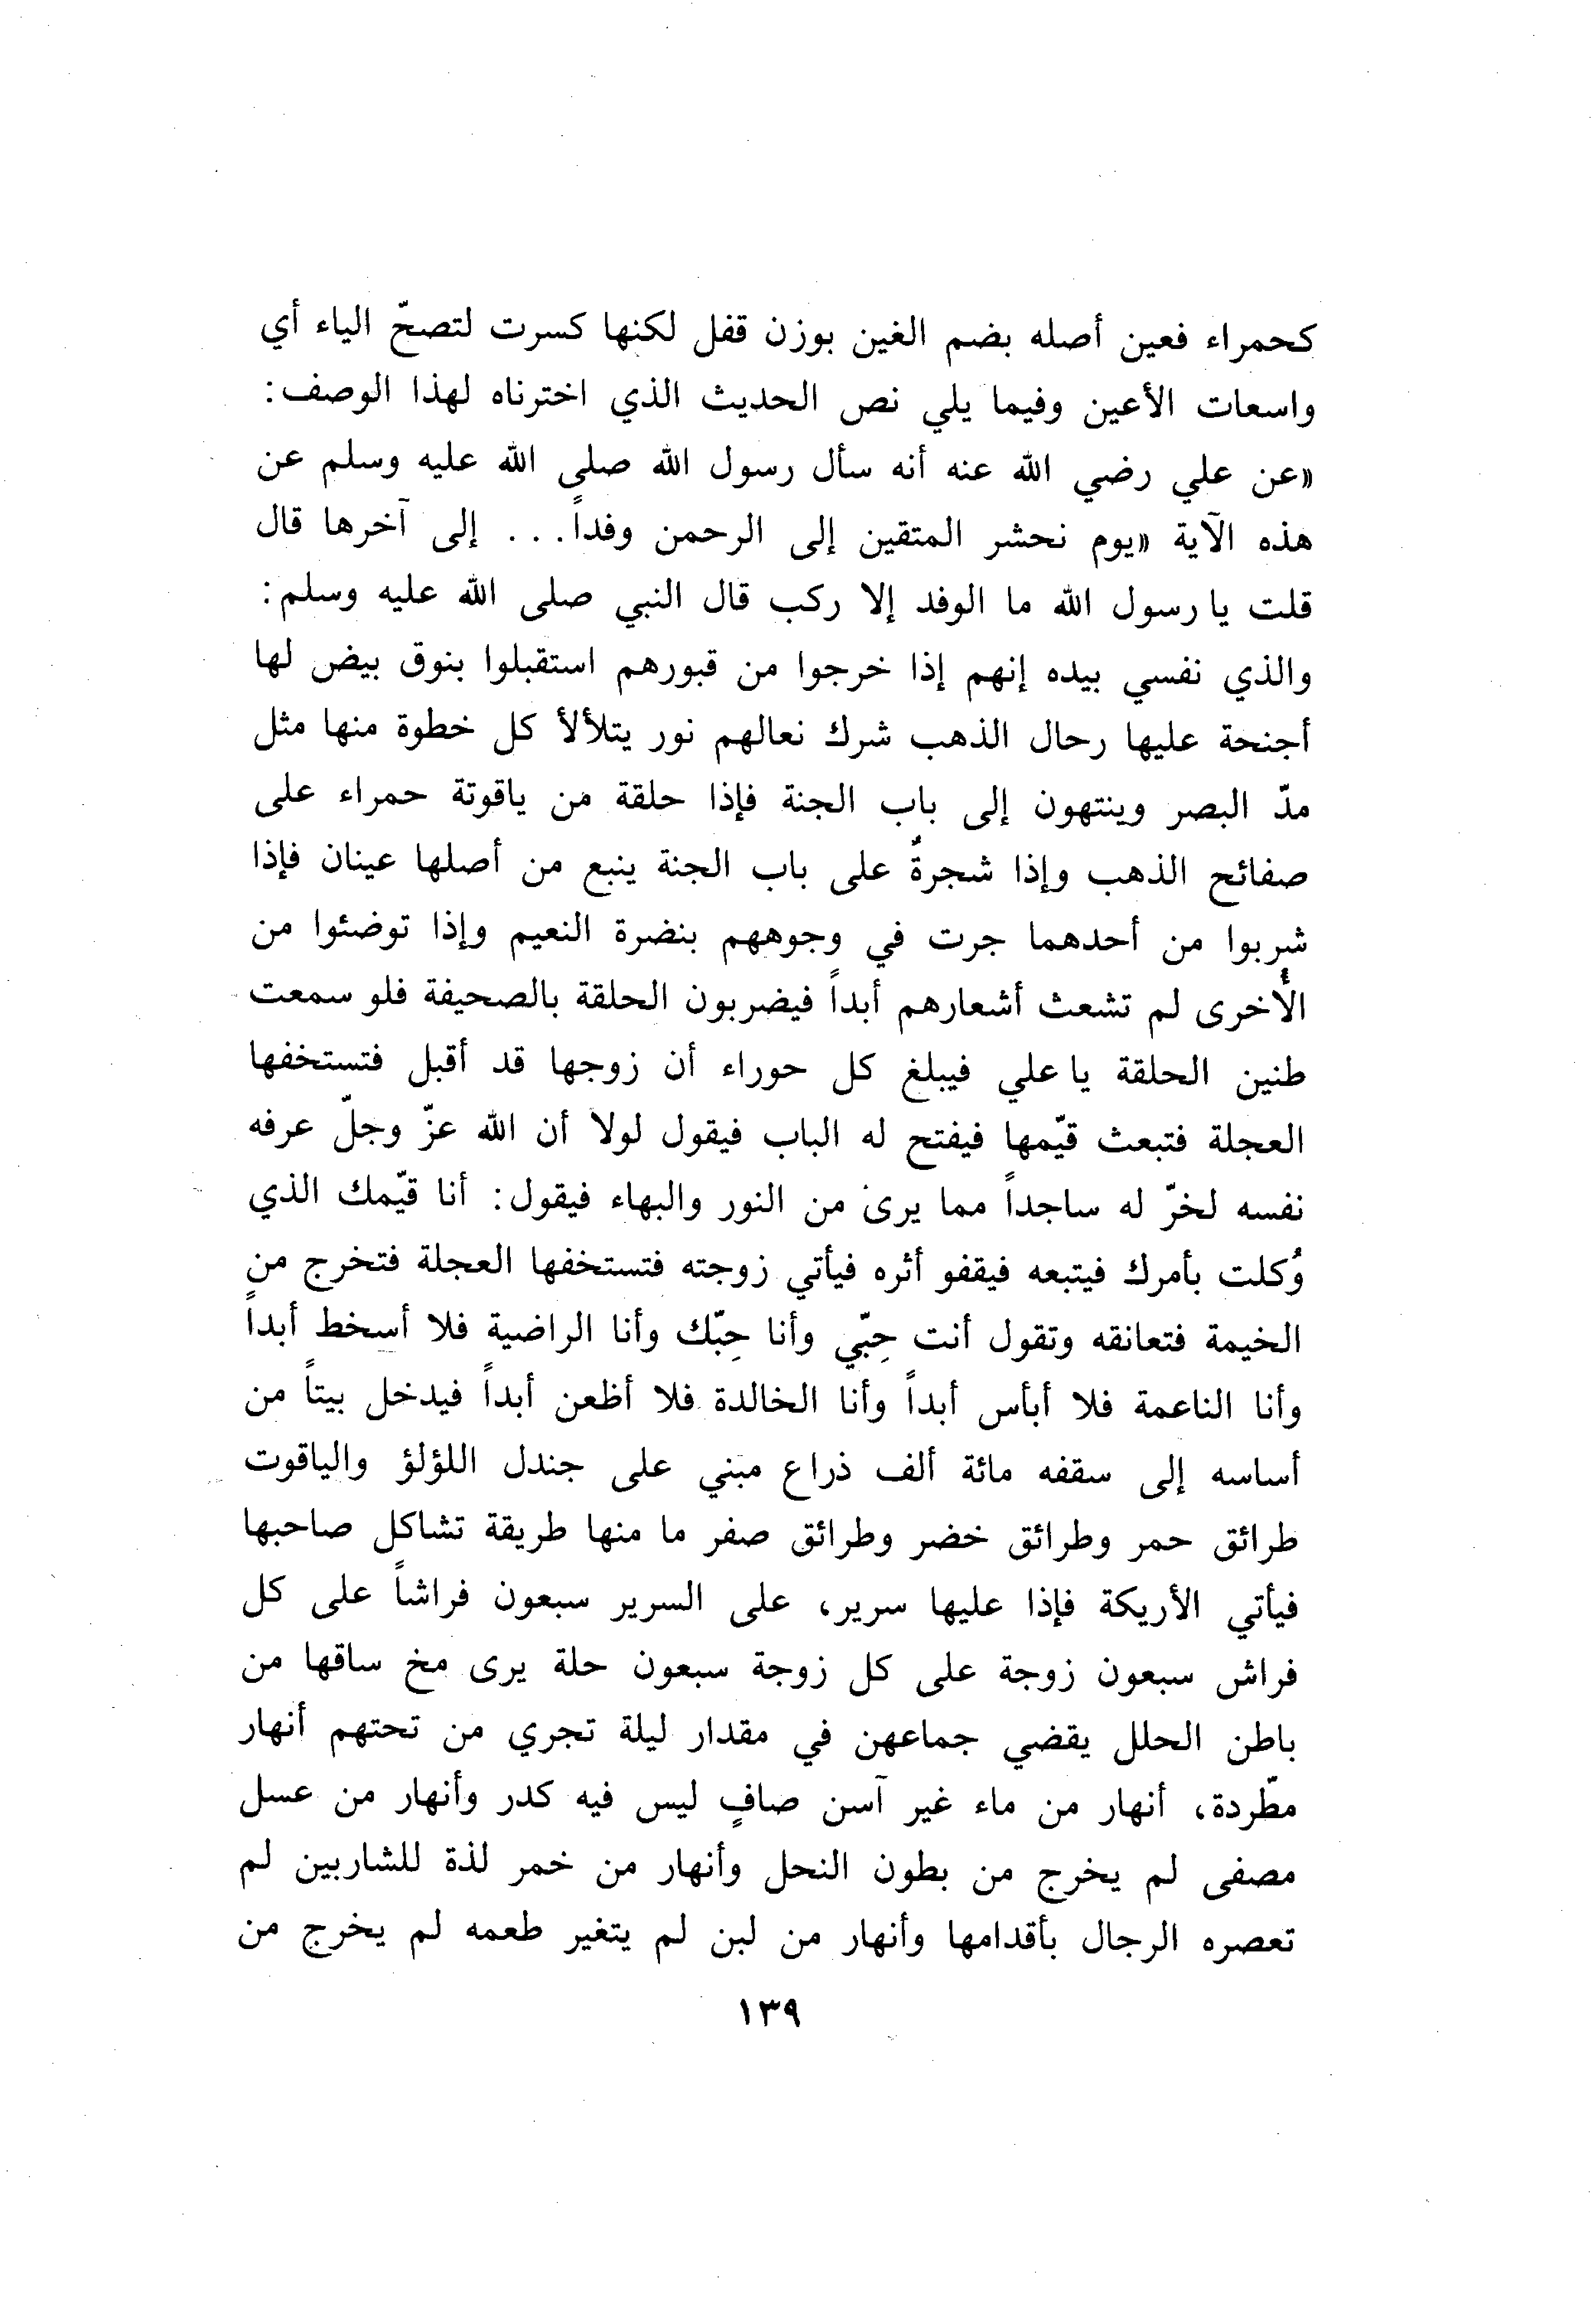 كحمراء فعين أصله بضم الغين بوزن قفل لكنها كسرت لتصحّ الياء أي
واسعات الأعين وفيما يلي نص الحديث الذي اخترناه لهذا الوصف:
«عن علي رضي الله عنه أنه سأل رسول الله صلى الله عليه وسلم عن
هذه الآية «يوم نحشر المتقين إلى الرحمن وفداً... إلى آخرها قال
قلت يا رسول الله ما الوفد إلا ركب قال النبي صلى الله عليه وسلم:
والذي نفسي بيده إنهم إذا خرجوا من قبورهم استقبلوا بنوق بيض لها
أجنحة عليها رحال الذهب شرك نعالهم نور يتلألأ كل خطوة منها مثل
مدّ البصر وينتهون إلى باب الجنة فإذا حلقة من ياقوتة حمراء على
صفائح الذهب وإذا شجرةٌ على باب الجنة ينبع من أصلها عينان فإذا
شربوا من أحدهما جرت في وجوههم بنضرة النعيم وإذا توضئوا من
الأُخرى لم تشعث أشعارهم أبداً فيضربون الحلقة بالصحيفة فلو سمعت
طنين الحلقة يا علي فيبلغ كل حوراء أن زوجها قد أقبل فتستخفها
العجلة فتبعث قيّمها فيفتح له الباب فيقول لولا أن الله عزّ وجلّ عرفه
نفسه لخرّ له ساجداً مما يرى من النور والبهاء فيقول: أنا قيّمك الذي
وُكلت بأمرك فيتبعه فيقفو أثره فيأتي زوجته فتستخفها العجلة فتخرج من
الخيمة فتعانقه وتقول أنت حِبّي وأنا حِبّك وأنا الراضية فلا أسخط أبداً
وأنا الناعمة فلا أبأس أبداً وأنا الخالدة فلا أظعن أبداً فيدخل بيتاً من
أساسه إلى سقفه مائة ألف ذراع مبني على جندل اللؤلؤ والياقوت
طرائق حمر وطرائق خضر وطرائق صفر ما منها طريقة تشاكل صاحبها
فيأتي الأريكة فإذا عليها سرير، على السرير سبعون فراشاً على كل
فراش سبعون زوجة على كل زوجة سبعون حلة يرى مخ ساقها من
باطن الحلل يقضي جماعهن في مقدار ليلة تجري من تحتهم أنهار
مطّردة، أنهار من ماء غير آسن صافٍ ليس فيه كدر وأنهار من عسل
مصفى لم يخرج من بطون النحل وأنهار من خمر لذة للشاربين لم
تعصره الرجال بأقدامها وأنهار من لبن لم يتغير طعمه لم يخرج من
١٣٩